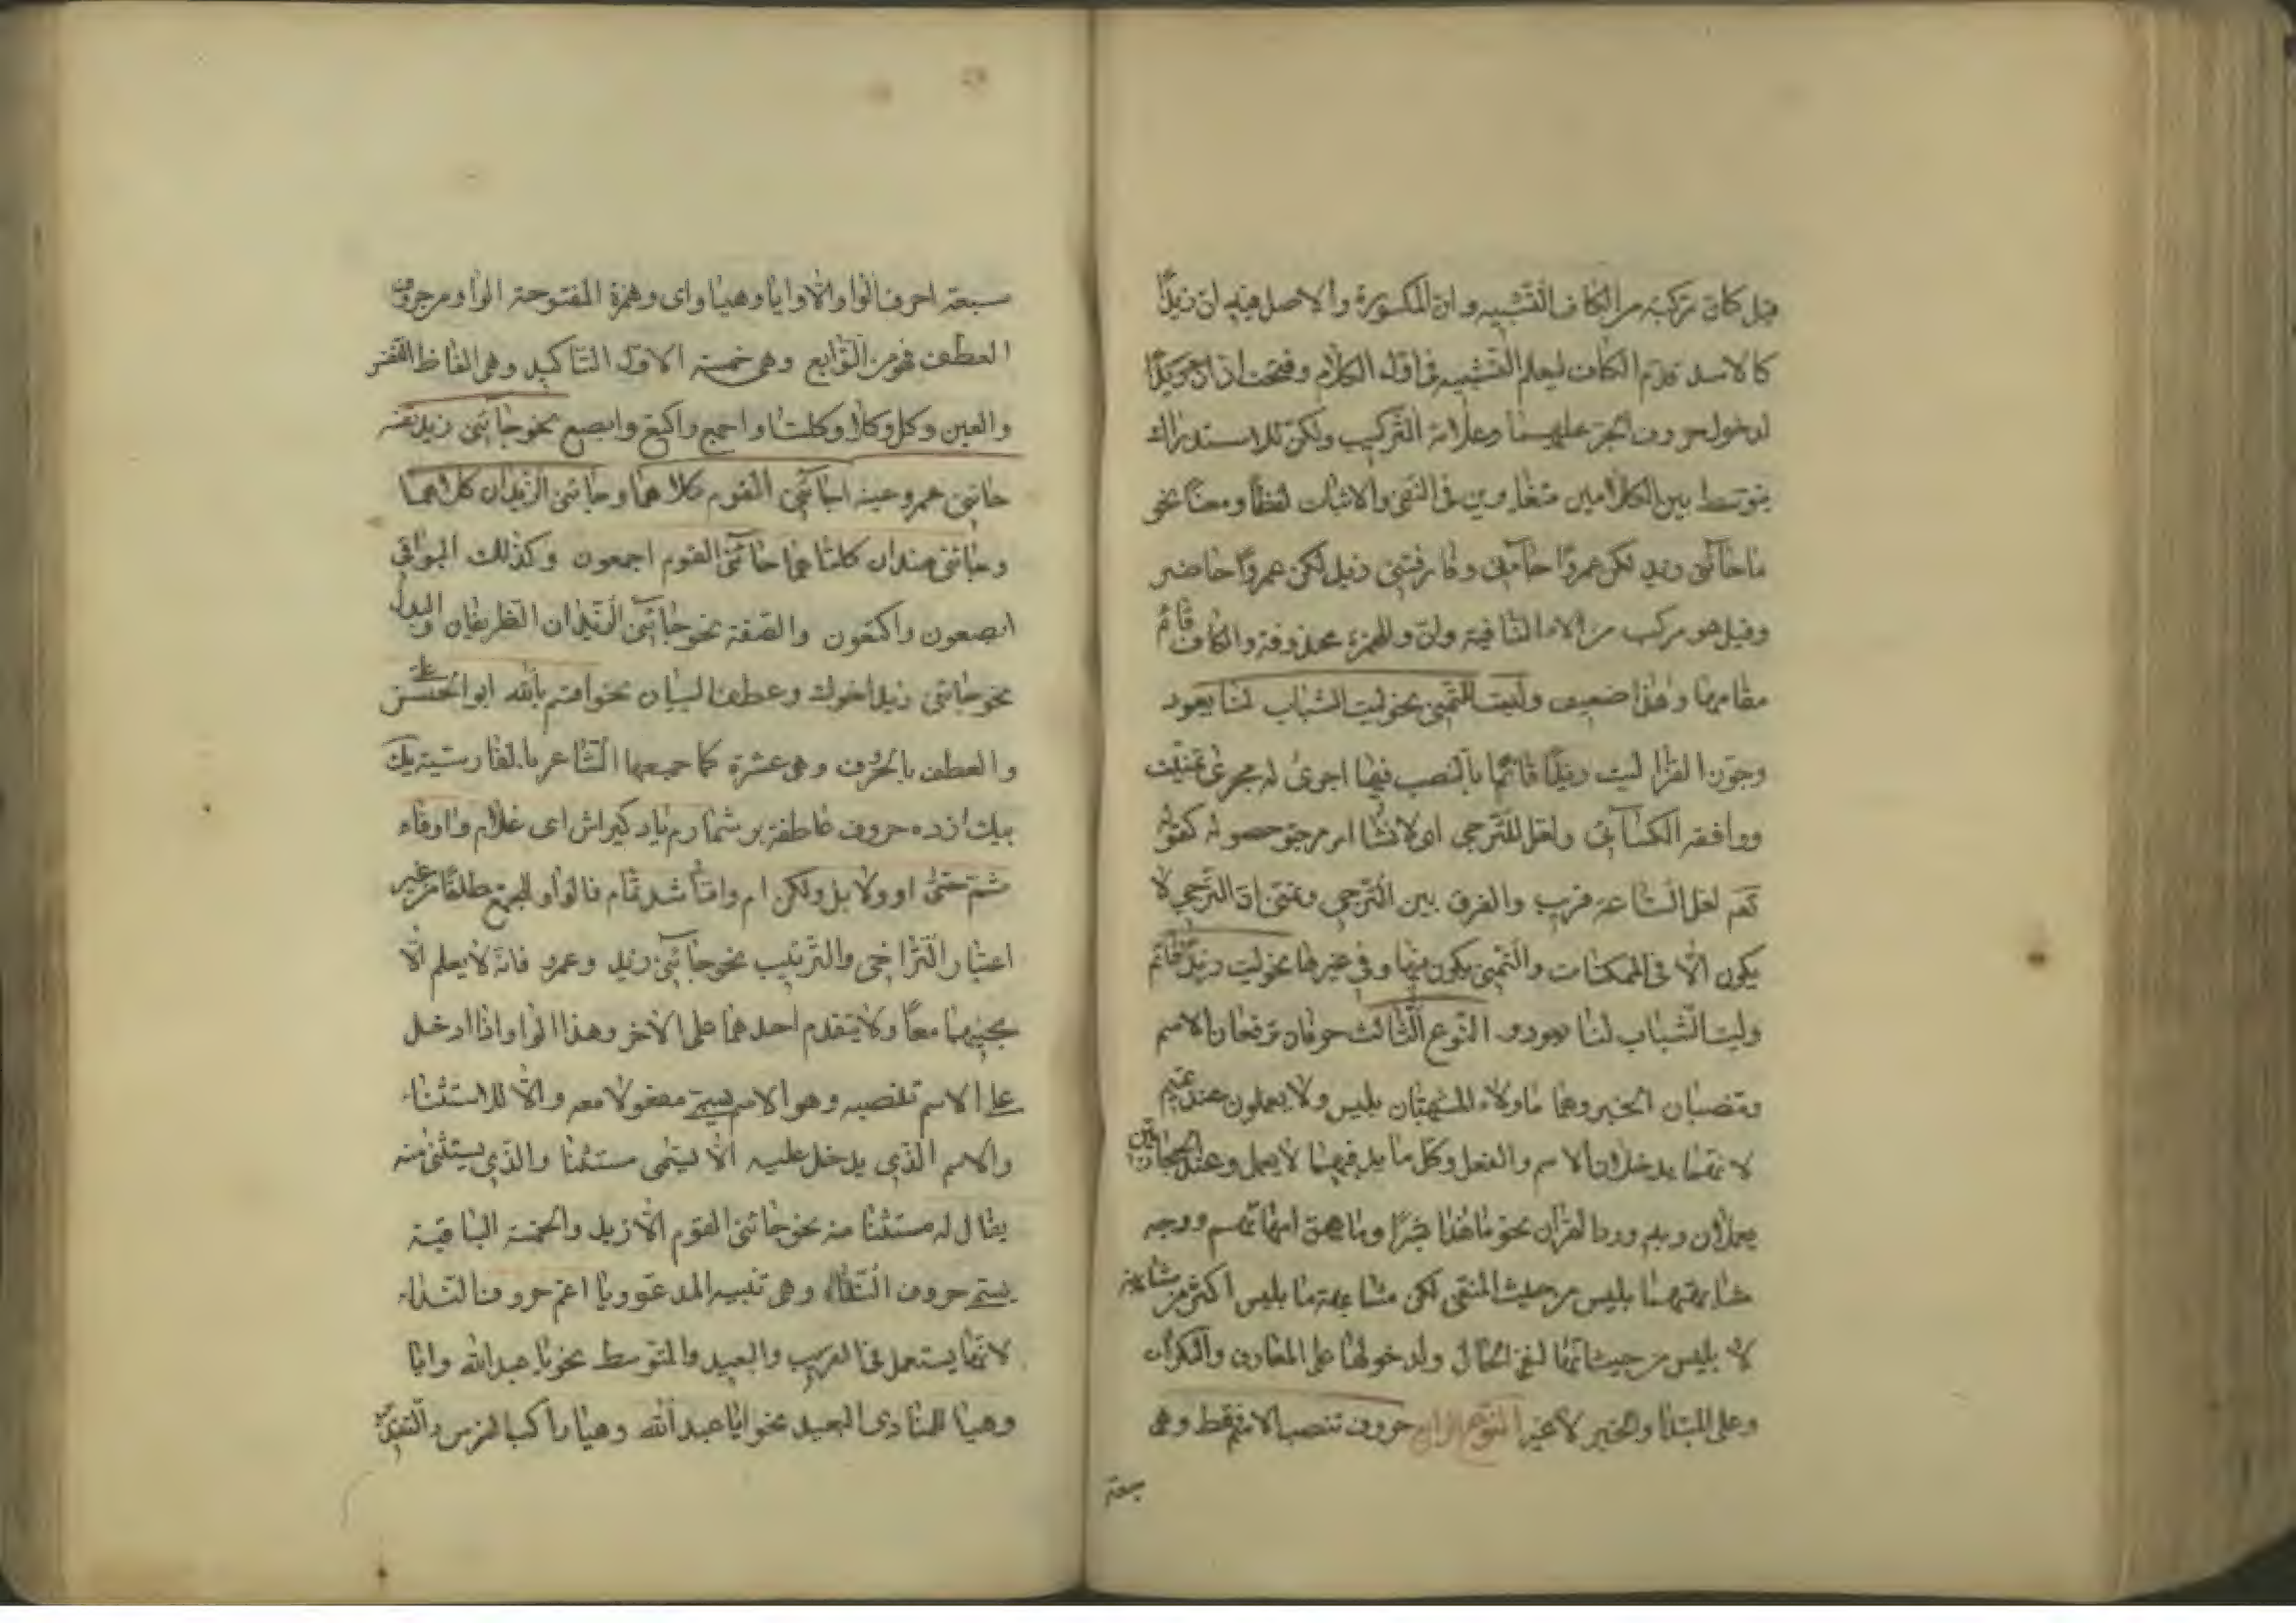 قيل كان تركبه من الكاف التشبيه وان المكسورة والاصل فيه ان زيدًا
كالاسد قدّم الكاف ليعلم التشبيه فى اوّل الكلام وفتحت
لدخول حروف الجرّ عليهما وعلامة التّركيب ولكنّ للاستدراك
يتوسّط بين الكلامين متغايرين فى النّفى والاثبات لفظًا ومعنًا نحو
ما جائنى زيد لكن عمروًا جائنى وفارقنى زيد لكن عمروًا حاضر
وقيل هو مركب من لاء النّافية وانّ والهمزة محذوفة والكاف قائم
مقامها وهذا ضعيف وليت للتّمنى نحو ليت الشّباب لنا يعود
وجوّز الفرّا ليت زيدًا قائمًا بالنّصب فيهما اجرى له مجرى تمنيّت
ووافقه الكسائى ولعلّ للتّرجى اى لانشا امر مرجوّ حصوله كقوله
تعم لعل السّاعة قريب والفرق بين التّرجى وتمنى انّ التّرجى لا
يكون الّا فى الممكنات والتّمنى يكون فيها وفى غيرها نحو ليت زيدًا قائم
وليت الشّباب لنا يعود النّوع الثّالث حرفان ترفعان الاسم
وتنصبان الخبر وهما ما ولاء المشبهتان بليس ولا يعملون عند تميم
لانّهما يدخلان الاسم والفعل وكل ما يدخلهما لا يعمل وعند الحجازيّين
يعملان وبهم ورد القرآن نحو ما هذا بشرًا وما هنّ امّهاتهم ووجه
مشابهتهما بليس من حيث النّفى لكن مشابهة ما بليس اكثر من مشابهة
لا بليس من حيث انّها لنفى الحال ولدخولها على المعارف والنّكرات
وعلى المبتدا والخبر لا غير النّوع الرابع حروف تنصب الاسم فقط وهى
سبعة
سبعة احرف الواو والّا وايا وهيا واى وهمزة المفتوحة الواو من حروف
العطف فهو من التّوابع وهى خمسة الاوّل التّاكيد وهى الفاظ النّفس
والعين وكل وكلا وكلتا واجمع واكتع وابصع نحو جائنى زيد نفسه
جائنى عمرو عينه جائنى القوم كلاهما وجائنى الزّيدان كلاهما
وجائنى هندان كلتاهما جائنى القوم اجمعون وكذلك البواقى
ابصعون واكتعون والصّفة نحو جائنى الزّيدان الظّريفان والبدل
نحو جائنى زيد اخوك وعطف البيان نحو اقسم بالله ابو الحسن على
والعطف بالحرف وهى عشرة كما جمعها الشّاعر بالفارسيّة يك
بيك از ده حروف عاطفة بر شمارم ياد كيراش اى غلام واو وفاء
ثمّ حتّى او ولا بل ولكن ام وامّا شد تمام فالواو للجمع مطلقًا من غير
اعتبار التّراخى والتّرتيب نحو جائنى زيد وعمرو فانّه لا يعلم الّا
مجيئهما معًا ولا يتقدم احدهما على الاخر وهذا الواو اذا ادخل
على الاسم تنصبه وهو الاسم يسمّى مفعولا معه والّا للاستثناء
والاسم الّذى يدخل عليه الّا يسمّى مستثنا والّذى يستثنى منه
يقال له مستثنا منه نحو جائنى القوم الّا زيد والخمسة الباقية
يسمّى حروف النّداء وهى تنبيه المدعوّ ويا اعم حروف النّداء
لانّها يستعمل فى القريب والبعيد والمتوسط نحو يا عبد الله وايا
وهيا للمنادى البعيد نحو ايا عبد الله وهيا راكب الفرس